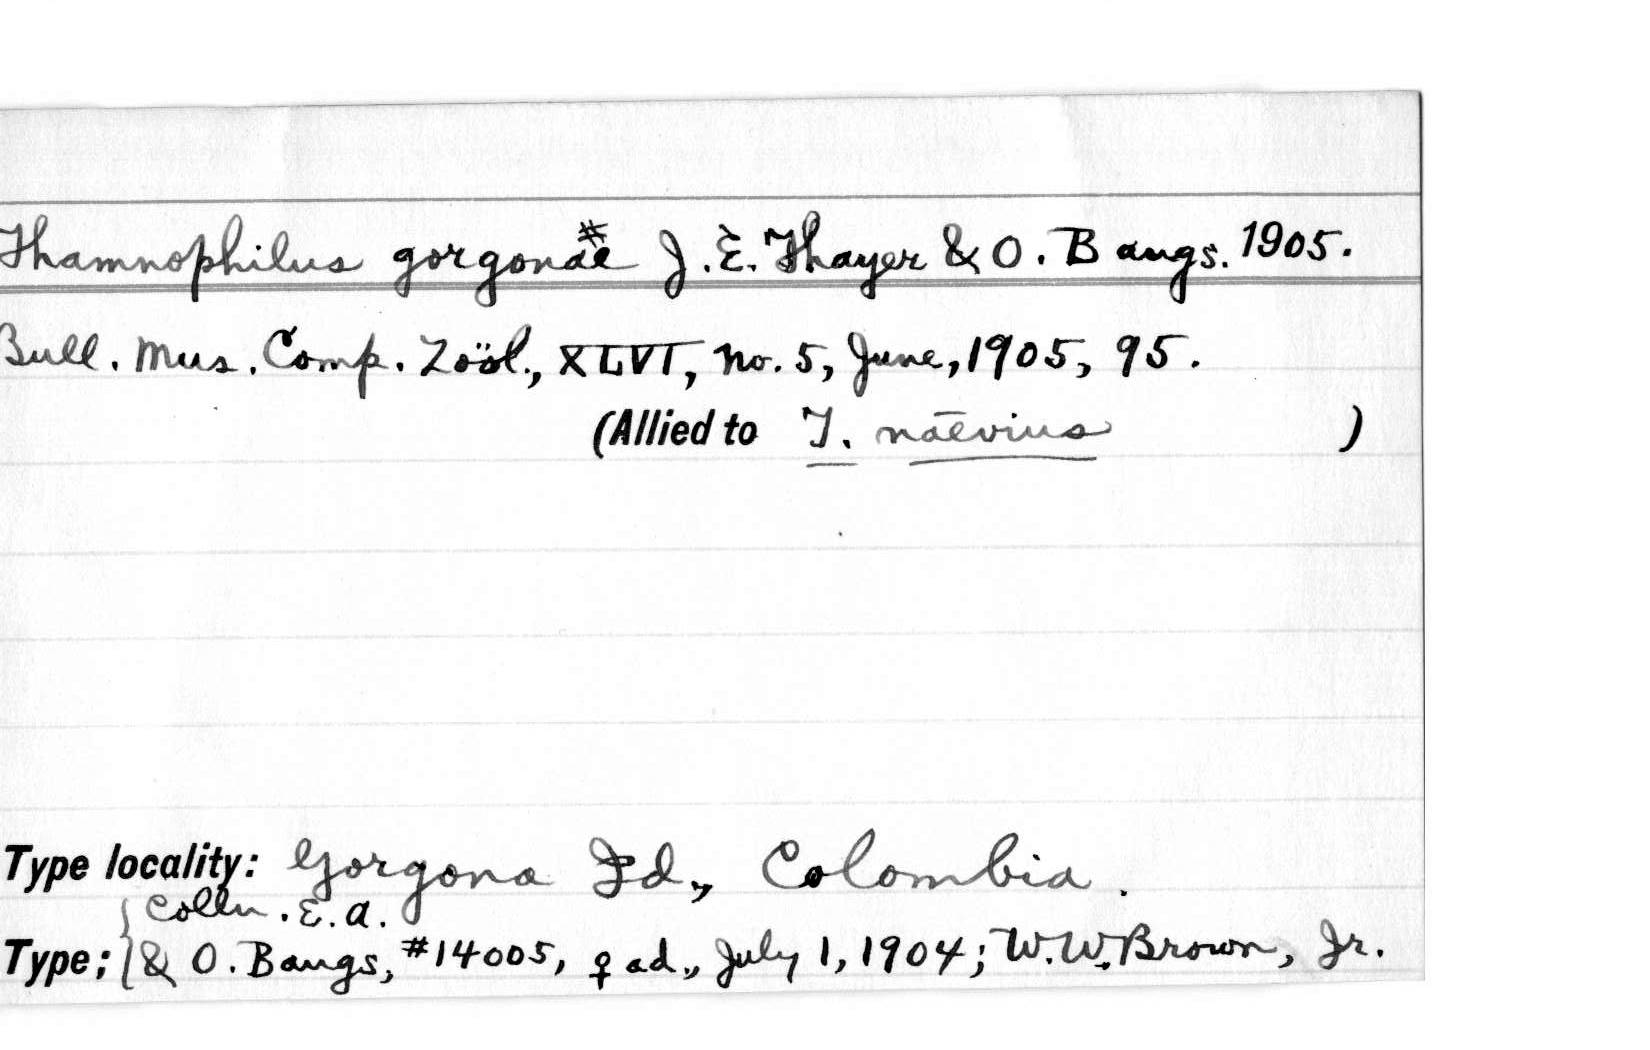 Thamnophilus gorgonae# J. E. Thayer & O. Bangs. 1905.
Bull. Mus. Comp. Zoöl., XLVI, no. 5, June, 1905, 95.
(Allied to T. naevius )
Type locality: Gorgona Id., Colombia.
Colln. E. A.
Type: & O. Bangs, #14005, ♀ ad., July 1, 1904; W. W. Brown, Jr.